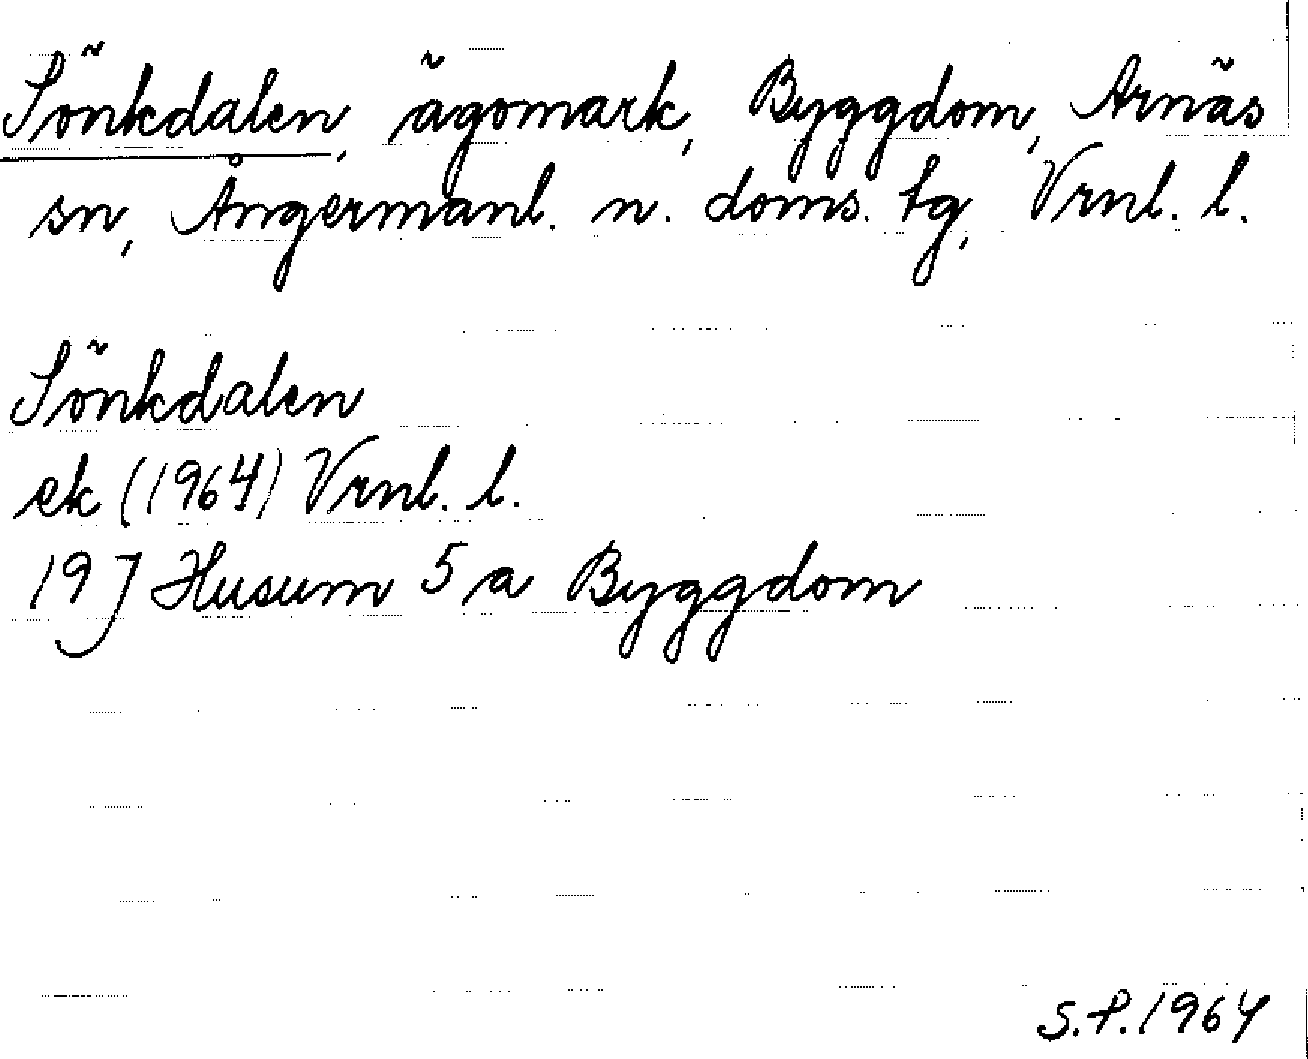 Sönkdalen, ägomark, Byggdom, Arnäs
sn, Ångermanl. n. doms. tg, Vrnl. l.
Sönkdalen
ek (1964) Vrnl. l.
19 J Husum 5 a Byggdom
S.P. 1964